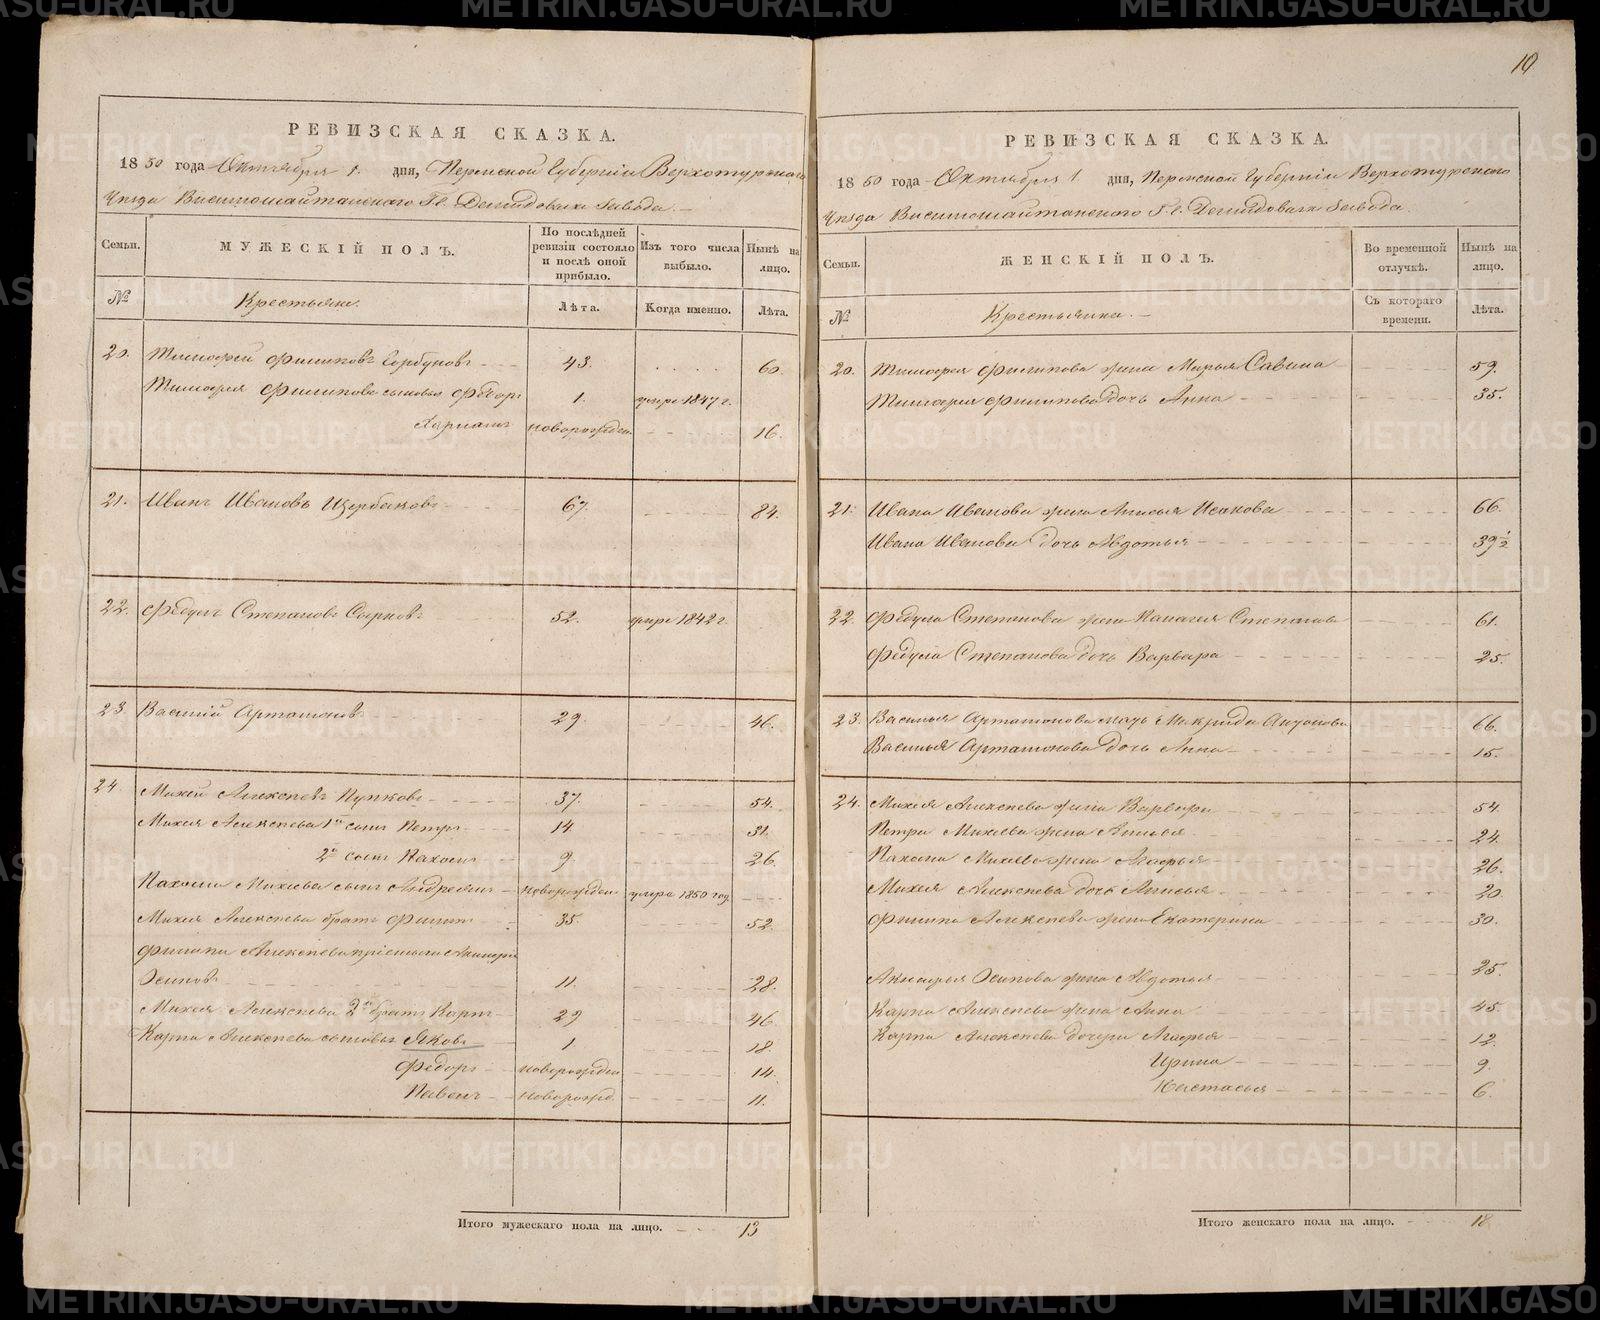 РЕВИЗСКАЯ СКАЗКА.
1850 года Октября 1. дня, Пермской Губерніи Верхотурскаго
Уѣзда Висимошайтанскаго Гг. Демидовыхъ Завода. —
Семьи. МУЖЕСКІЙ ПОЛЪ. По послѣдней ревизіи состояло и послѣ оной прибыло. Изъ того числа выбыло. Нынѣ на лицо.
№ Крестьяне. Лѣта. Когда именно. Лѣта.
20. Тимофей Филиповъ Горбуновъ 43. 60.
Тимофея Филипова сыновья Ѳедоръ 1. умре 1847 г.
новорожден. 16.
21. Иванъ Ивановъ Щербаковъ 67. 84.
22. Ѳедулъ Степановъ 52. умре 1842 г.
23. Василій Артамоновъ 29. 46.
24. Михей Алексѣевъ Пупковъ 37. 54.
Михея Алексѣева 1й сынъ Петръ 14 31.
2й сынъ Пахомъ 9. 26.
Пахома Михеева сынъ Андреянъ новорожден умре 1850 год.
Михея Алексѣева братъ Филипъ 35. 52.
Филипа Алексѣева пріемышъ
Осиповъ 11. 28.
Михея Алексѣева 2й братъ Карпъ 29 46
Карпа Алексѣева сыновья Яковъ 1. 18.
Ѳедоръ новорожден 14.
Павелъ новорожд. 11.
Итого мужескаго пола на лицо. 13
19
РЕВИЗСКАЯ СКАЗКА.
1850 года Октября 1. дня, Пермской Губерніи Верхотурскаго
Уѣзда Висимошайтанскаго Гг. Демидовыхъ Завода.
Семьи. ЖЕНСКІЙ ПОЛЪ. Во временной отлучкѣ. Нынѣ на лицо.
№ Крестьянки. — Съ котораго времени. Лѣта.
20. Тимофея Филипова жена Марья Савина 59.
Тимофея Филипова дочь Анна 35.
21. Ивана Иванова жена Исакова 66.
Ивана Иванова дочь Авдотья 39 1/2
22. Ѳедула Степанова жена Степанова 61.
Ѳедула Степанова дочь Варвара 25.
23. Василья Артамонова мать Макрида Антонова 66.
Василья Артамонова дочь Анна 15.
24. Михея Алексѣева жена Варвара 54.
Петра Михеева жена 24.
Пахома Михеева жена Агафья 26.
Михея Алексѣева дочь 20.
Филипа Алексѣева жена Екатерина 30.
Осипова жена Авдотья 25.
Карпа Алексѣева жена Анна 45.
Карпа Алексѣева дочери Агафья 12.
Ирина 9.
Настасья 6.
Итого женскаго пола на лицо. 18
METRIKI.GASO-URAL.RU